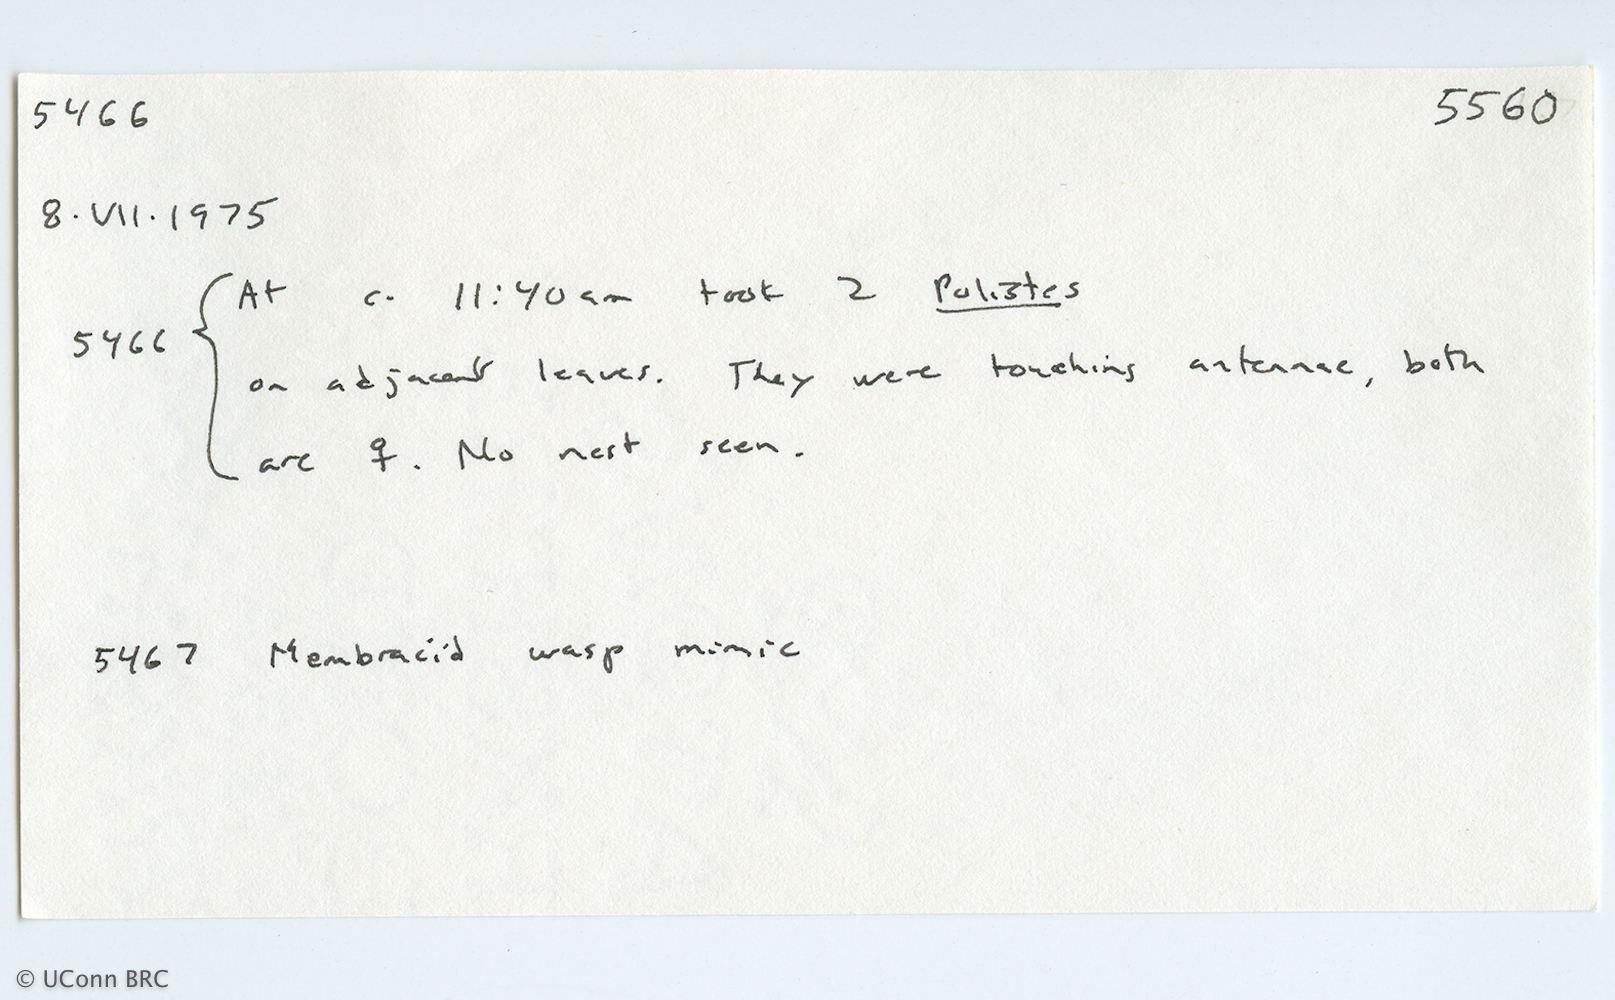 5466 5560
8.VII.1975
At c. 11:40am took 2 Polistes
5466
on adjacent leaves. They were touching antennae, both
are ♀. No nest seen.
5467 Membracid wasp mimic
© UConn BRC